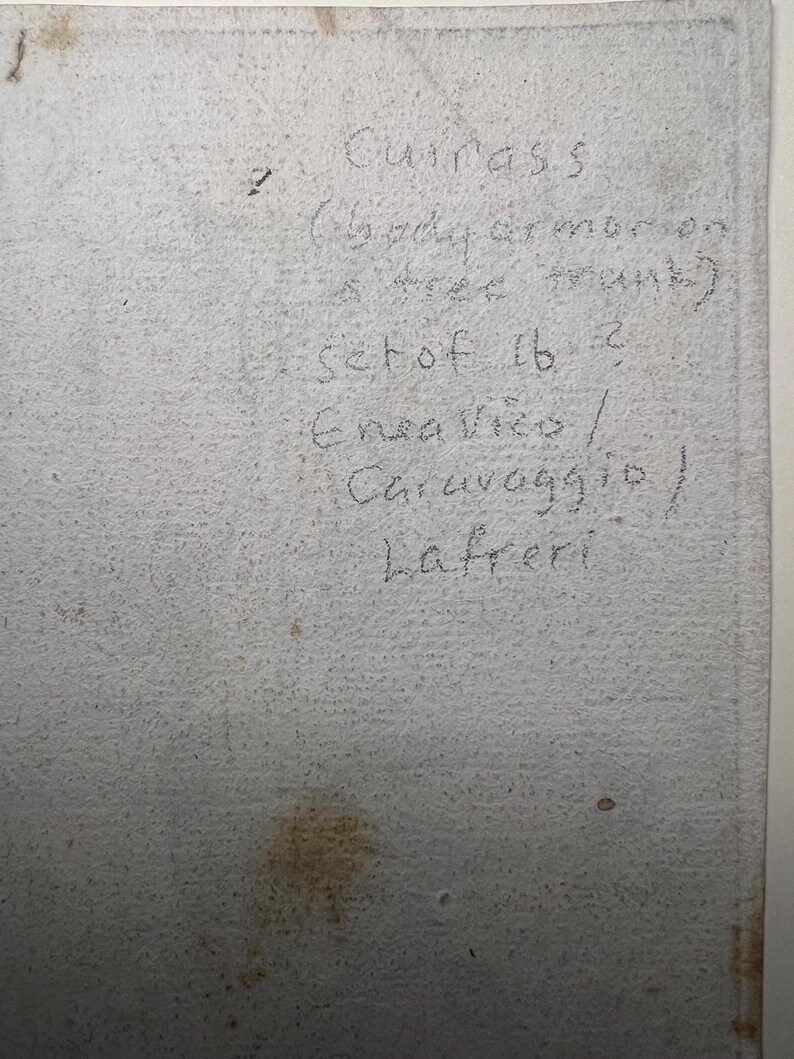 Cuirass
(body armor on
a tree trunk)
Set of 16 ?
Enea Vico /
Caravaggio /
Lafreri